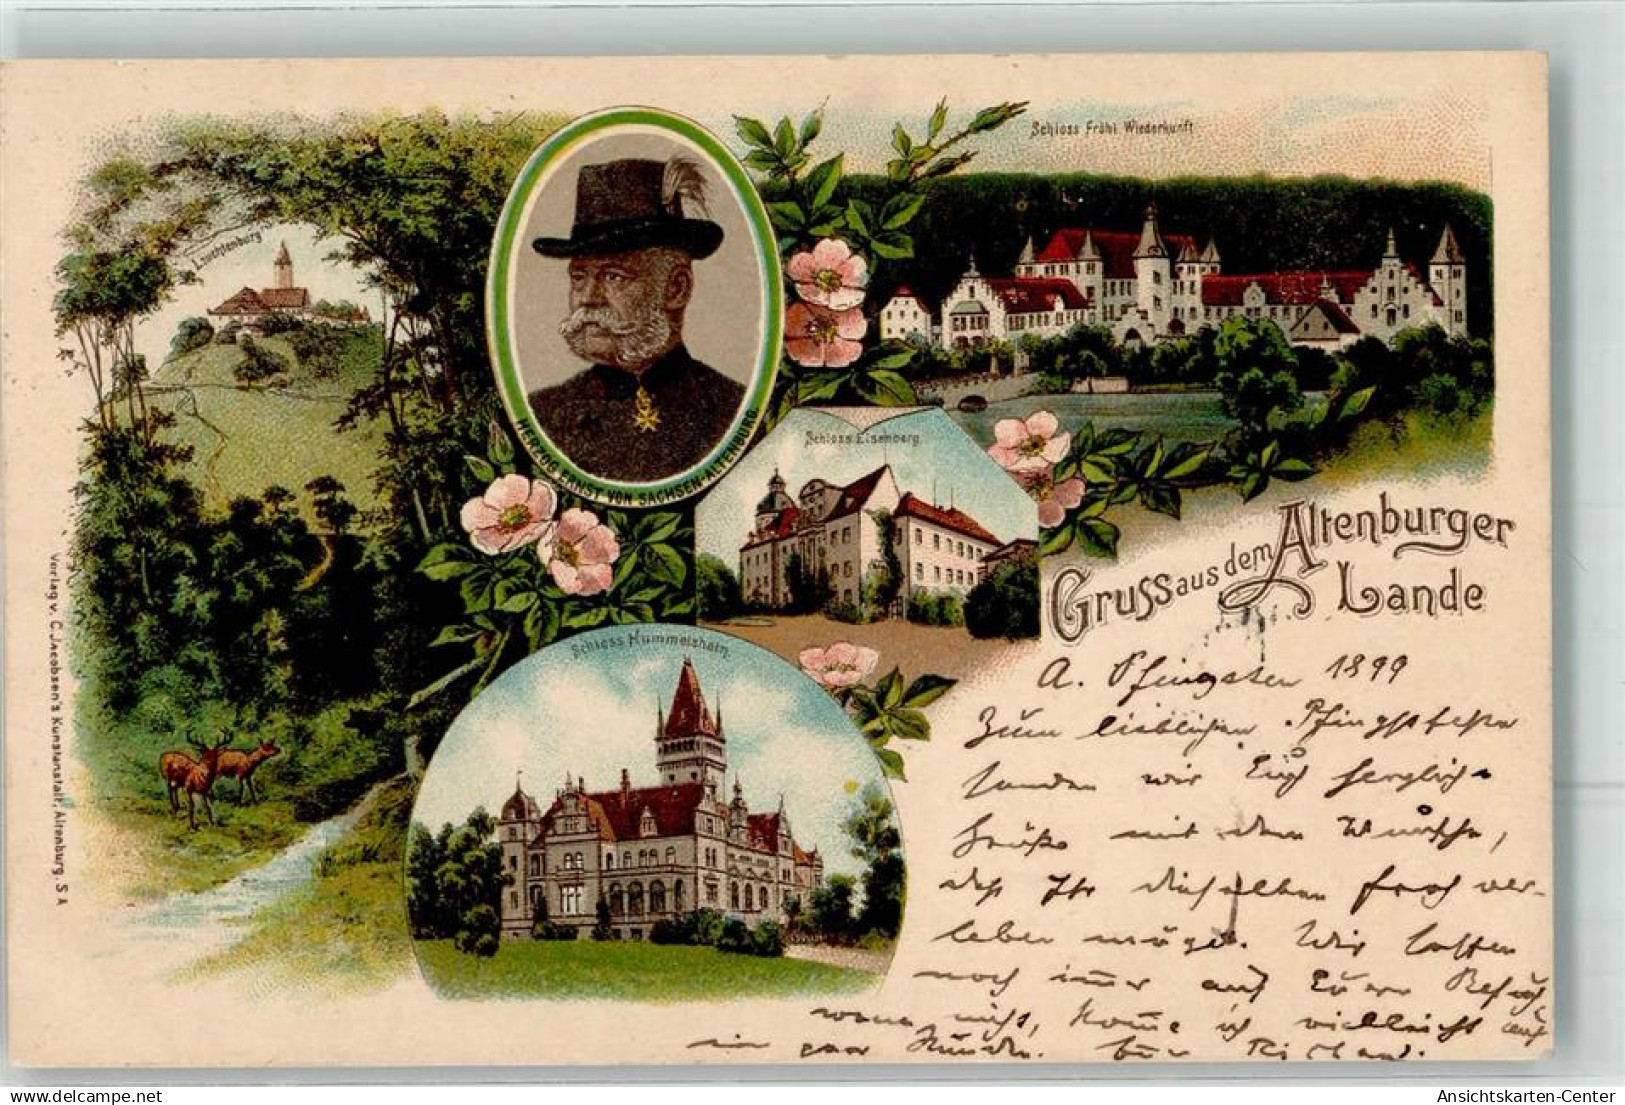 Schloss Fröhl Wiederkunft
Leuchtenburg
HERZOG ERNST VON SACHSEN-ALTENBURG.
Schloss Eisenberg.
Gruss aus dem Altenburger
Lande
Schloss Hummelshain.
Verlag v. C. Jacobsen's Kunstanstalt, Altenburg, S A
A. Pfingsten 1899
Zum lieblichen Pfingstfeste
senden wir Euch herzliche
Grüße mit dem Wunsche,
daß Ihr dieselben froh ver-
leben möget. Wir hoffen
noch immer auf Euren Besuch
wenn nicht, komme ich vielleicht auf
ein paar Stunden.
Ansichtskarten-Center